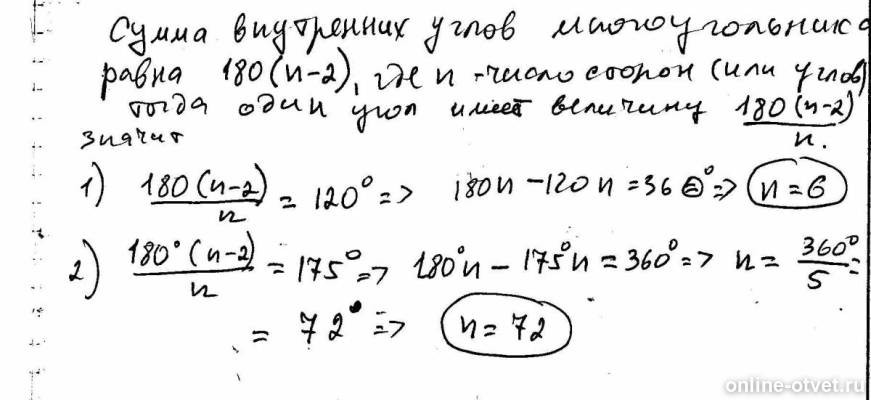 Сумма внутренних углов многоугольника
равна 180(n-2), где n - число сторон (или углов)
тогда один угол имеет величину 180(n-2)/n.
значит
1) 180(n-2)/n = 120° => 180n - 120n = 360° => n = 6
2) 180°(n-2)/n = 175° => 180°n - 175°n = 360° => n = 360°/5 =
= 72° => n = 72
online-otvet.ru